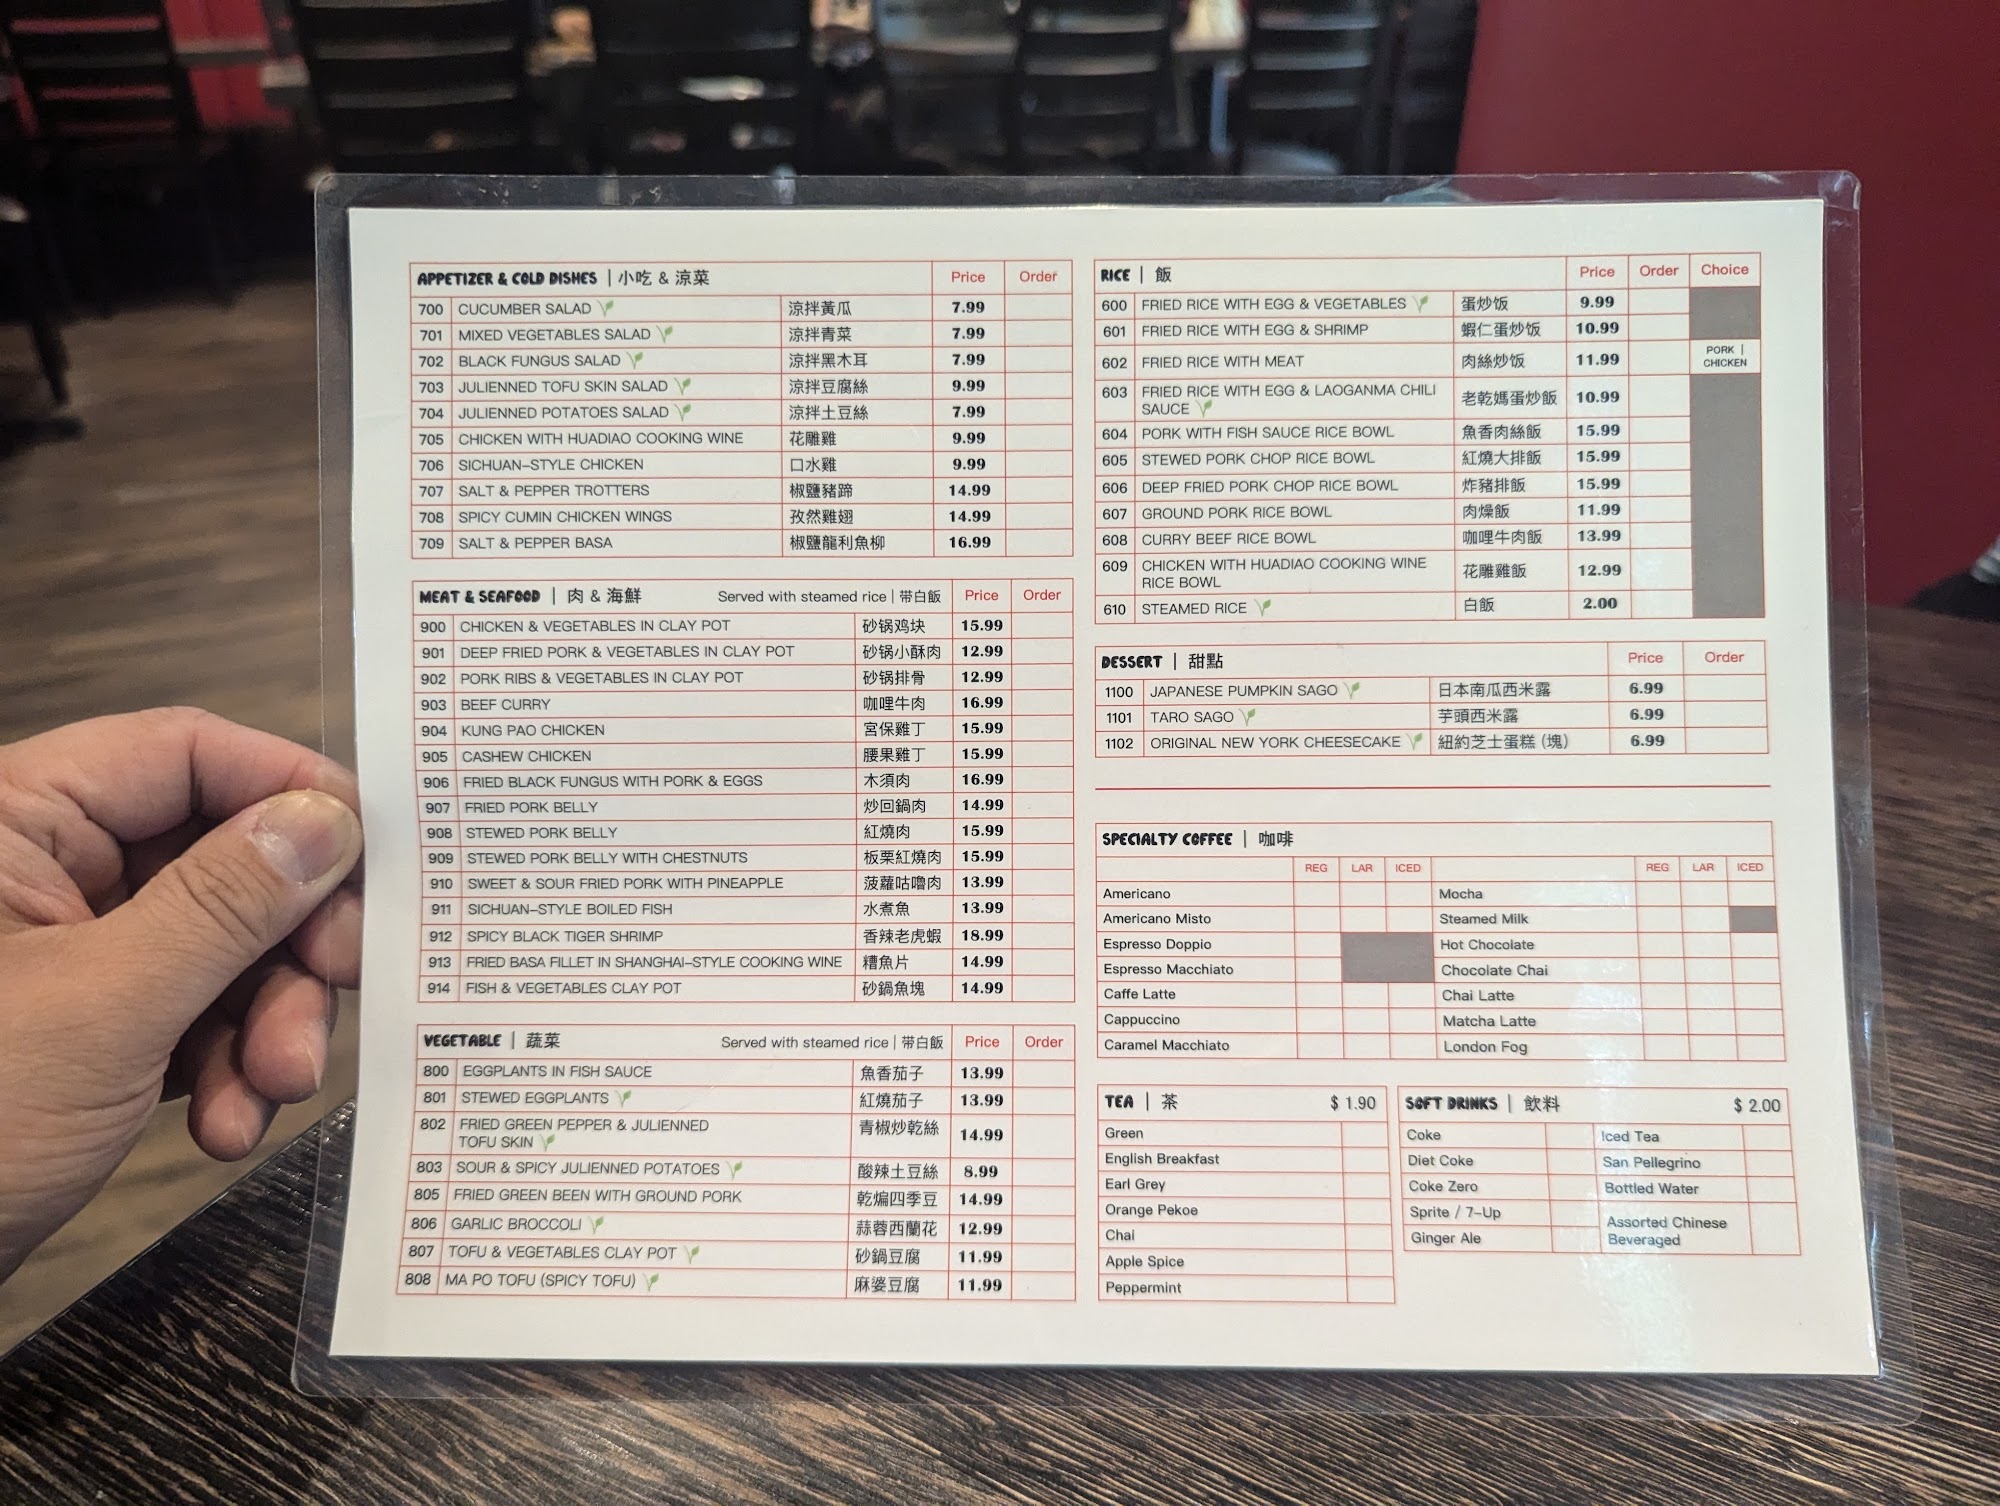 APPETIZER & COLD DISHES | 小吃 & 涼菜 Price Order
700 CUCUMBER SALAD 涼拌黃瓜 7.99
701 MIXED VEGETABLES SALAD 涼拌青菜 7.99
702 BLACK FUNGUS SALAD 涼拌黑木耳 7.99
703 JULIENNED TOFU SKIN SALAD 涼拌豆腐絲 9.99
704 JULIENNED POTATOES SALAD 涼拌土豆絲 7.99
705 CHICKEN WITH HUADIAO COOKING WINE 花雕雞 9.99
706 SICHUAN-STYLE CHICKEN 口水雞 9.99
707 SALT & PEPPER TROTTERS 椒鹽豬蹄 14.99
708 SPICY CUMIN CHICKEN WINGS 孜然雞翅 14.99
709 SALT & PEPPER BASA 椒鹽龍利魚柳 16.99
MEAT & SEAFOOD | 肉 & 海鮮 Served with steamed rice | 带白飯 Price Order
900 CHICKEN & VEGETABLES IN CLAY POT 砂锅鸡块 15.99
901 DEEP FRIED PORK & VEGETABLES IN CLAY POT 砂锅小酥肉 12.99
902 PORK RIBS & VEGETABLES IN CLAY POT 砂锅排骨 12.99
903 BEEF CURRY 咖哩牛肉 16.99
904 KUNG PAO CHICKEN 宮保雞丁 15.99
905 CASHEW CHICKEN 腰果雞丁 15.99
906 FRIED BLACK FUNGUS WITH PORK & EGGS 木須肉 16.99
907 FRIED PORK BELLY 炒回鍋肉 14.99
908 STEWED PORK BELLY 紅燒肉 15.99
909 STEWED PORK BELLY WITH CHESTNUTS 板栗紅燒肉 15.99
910 SWEET & SOUR FRIED PORK WITH PINEAPPLE 菠蘿咕嚕肉 13.99
911 SICHUAN-STYLE BOILED FISH 水煮魚 13.99
912 SPICY BLACK TIGER SHRIMP 香辣老虎蝦 18.99
913 FRIED BASA FILLET IN SHANGHAI-STYLE COOKING WINE 糟魚片 14.99
914 FISH & VEGETABLES CLAY POT 砂鍋魚塊 14.99
VEGETABLE | 蔬菜 Served with steamed rice | 带白飯 Price Order
800 EGGPLANTS IN FISH SAUCE 魚香茄子 13.99
801 STEWED EGGPLANTS 紅燒茄子 13.99
802 FRIED GREEN PEPPER & JULIENNED 青椒炒乾絲 14.99
TOFU SKIN
803 SOUR & SPICY JULIENNED POTATOES 酸辣土豆絲 8.99
805 FRIED GREEN BEEN WITH GROUND PORK 乾煸四季豆 14.99
806 GARLIC BROCCOLI 蒜蓉西蘭花 12.99
807 TOFU & VEGETABLES CLAY POT 砂鍋豆腐 11.99
808 MA PO TOFU (SPICY TOFU) 麻婆豆腐 11.99
RICE | 飯 Price Order Choice
600 FRIED RICE WITH EGG & VEGETABLES 蛋炒饭 9.99
601 FRIED RICE WITH EGG & SHRIMP 蝦仁蛋炒饭 10.99
602 FRIED RICE WITH MEAT 肉絲炒饭 11.99 PORK |
CHICKEN
603 FRIED RICE WITH EGG & LAOGANMA CHILI 老乾媽蛋炒飯 10.99
SAUCE
604 PORK WITH FISH SAUCE RICE BOWL 魚香肉絲飯 15.99
605 STEWED PORK CHOP RICE BOWL 紅燒大排飯 15.99
606 DEEP FRIED PORK CHOP RICE BOWL 炸豬排飯 15.99
607 GROUND PORK RICE BOWL 肉燥飯 11.99
608 CURRY BEEF RICE BOWL 咖哩牛肉飯 13.99
609 CHICKEN WITH HUADIAO COOKING WINE 花雕雞飯 12.99
RICE BOWL
610 STEAMED RICE 白飯 2.00
DESSERT | 甜點 Price Order
1100 JAPANESE PUMPKIN SAGO 日本南瓜西米露 6.99
1101 TARO SAGO 芋頭西米露 6.99
1102 ORIGINAL NEW YORK CHEESECAKE 紐約芝士蛋糕 (塊) 6.99
SPECIALTY COFFEE | 咖啡
REG LAR ICED REG LAR ICED
Americano Mocha
Americano Misto Steamed Milk
Espresso Doppio Hot Chocolate
Espresso Macchiato Chocolate Chai
Caffe Latte Chai Latte
Cappuccino Matcha Latte
Caramel Macchiato London Fog
TEA | 茶 $ 1.90
Green
English Breakfast
Earl Grey
Orange Pekoe
Chai
Apple Spice
Peppermint
SOFT DRINKS | 飲料 $ 2.00
Coke Iced Tea
Diet Coke San Pellegrino
Coke Zero Bottled Water
Sprite / 7-Up Assorted Chinese
Ginger Ale Beveraged